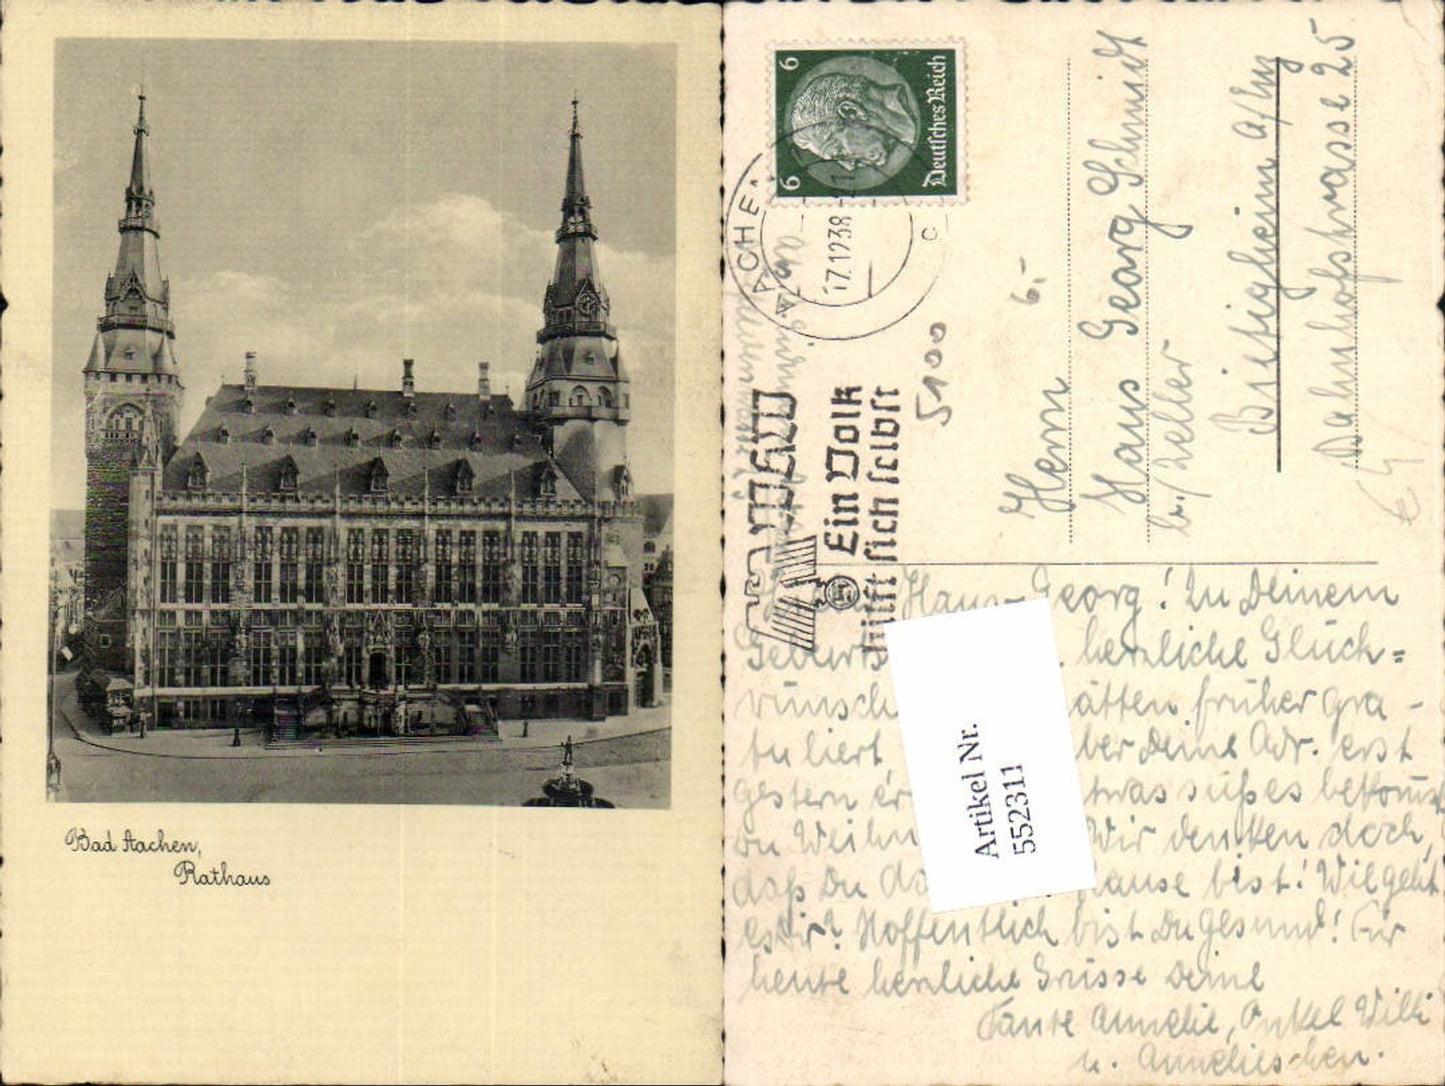 Bad Aachen,
Rathaus
6 6
Deutsches Reich
AACHEN
17.12.38
c
Ein Volk
hilft sich selbst
5100
6.-
Herrn
Hans Georg Schmidt
b./ Zeller
Bietigheim a/Enz
Bahnhofstrasse 25
Hans-Georg! Zu Deinem
Geburts herzliche Glück=
wünsch ätten früher gra-
tuliert ber Deine Adr. erst
gestern er twas süßes bekomms
zu Weihn Wir denken doch,
daß Du da Hause bist! Wie geht
es Dir? Hoffentlich bist Du gesund! Für
heute herzliche Grüsse Deine
Tante Annelie, Onkel Willi
u. Annelieschen.
Artikel Nr.
552311